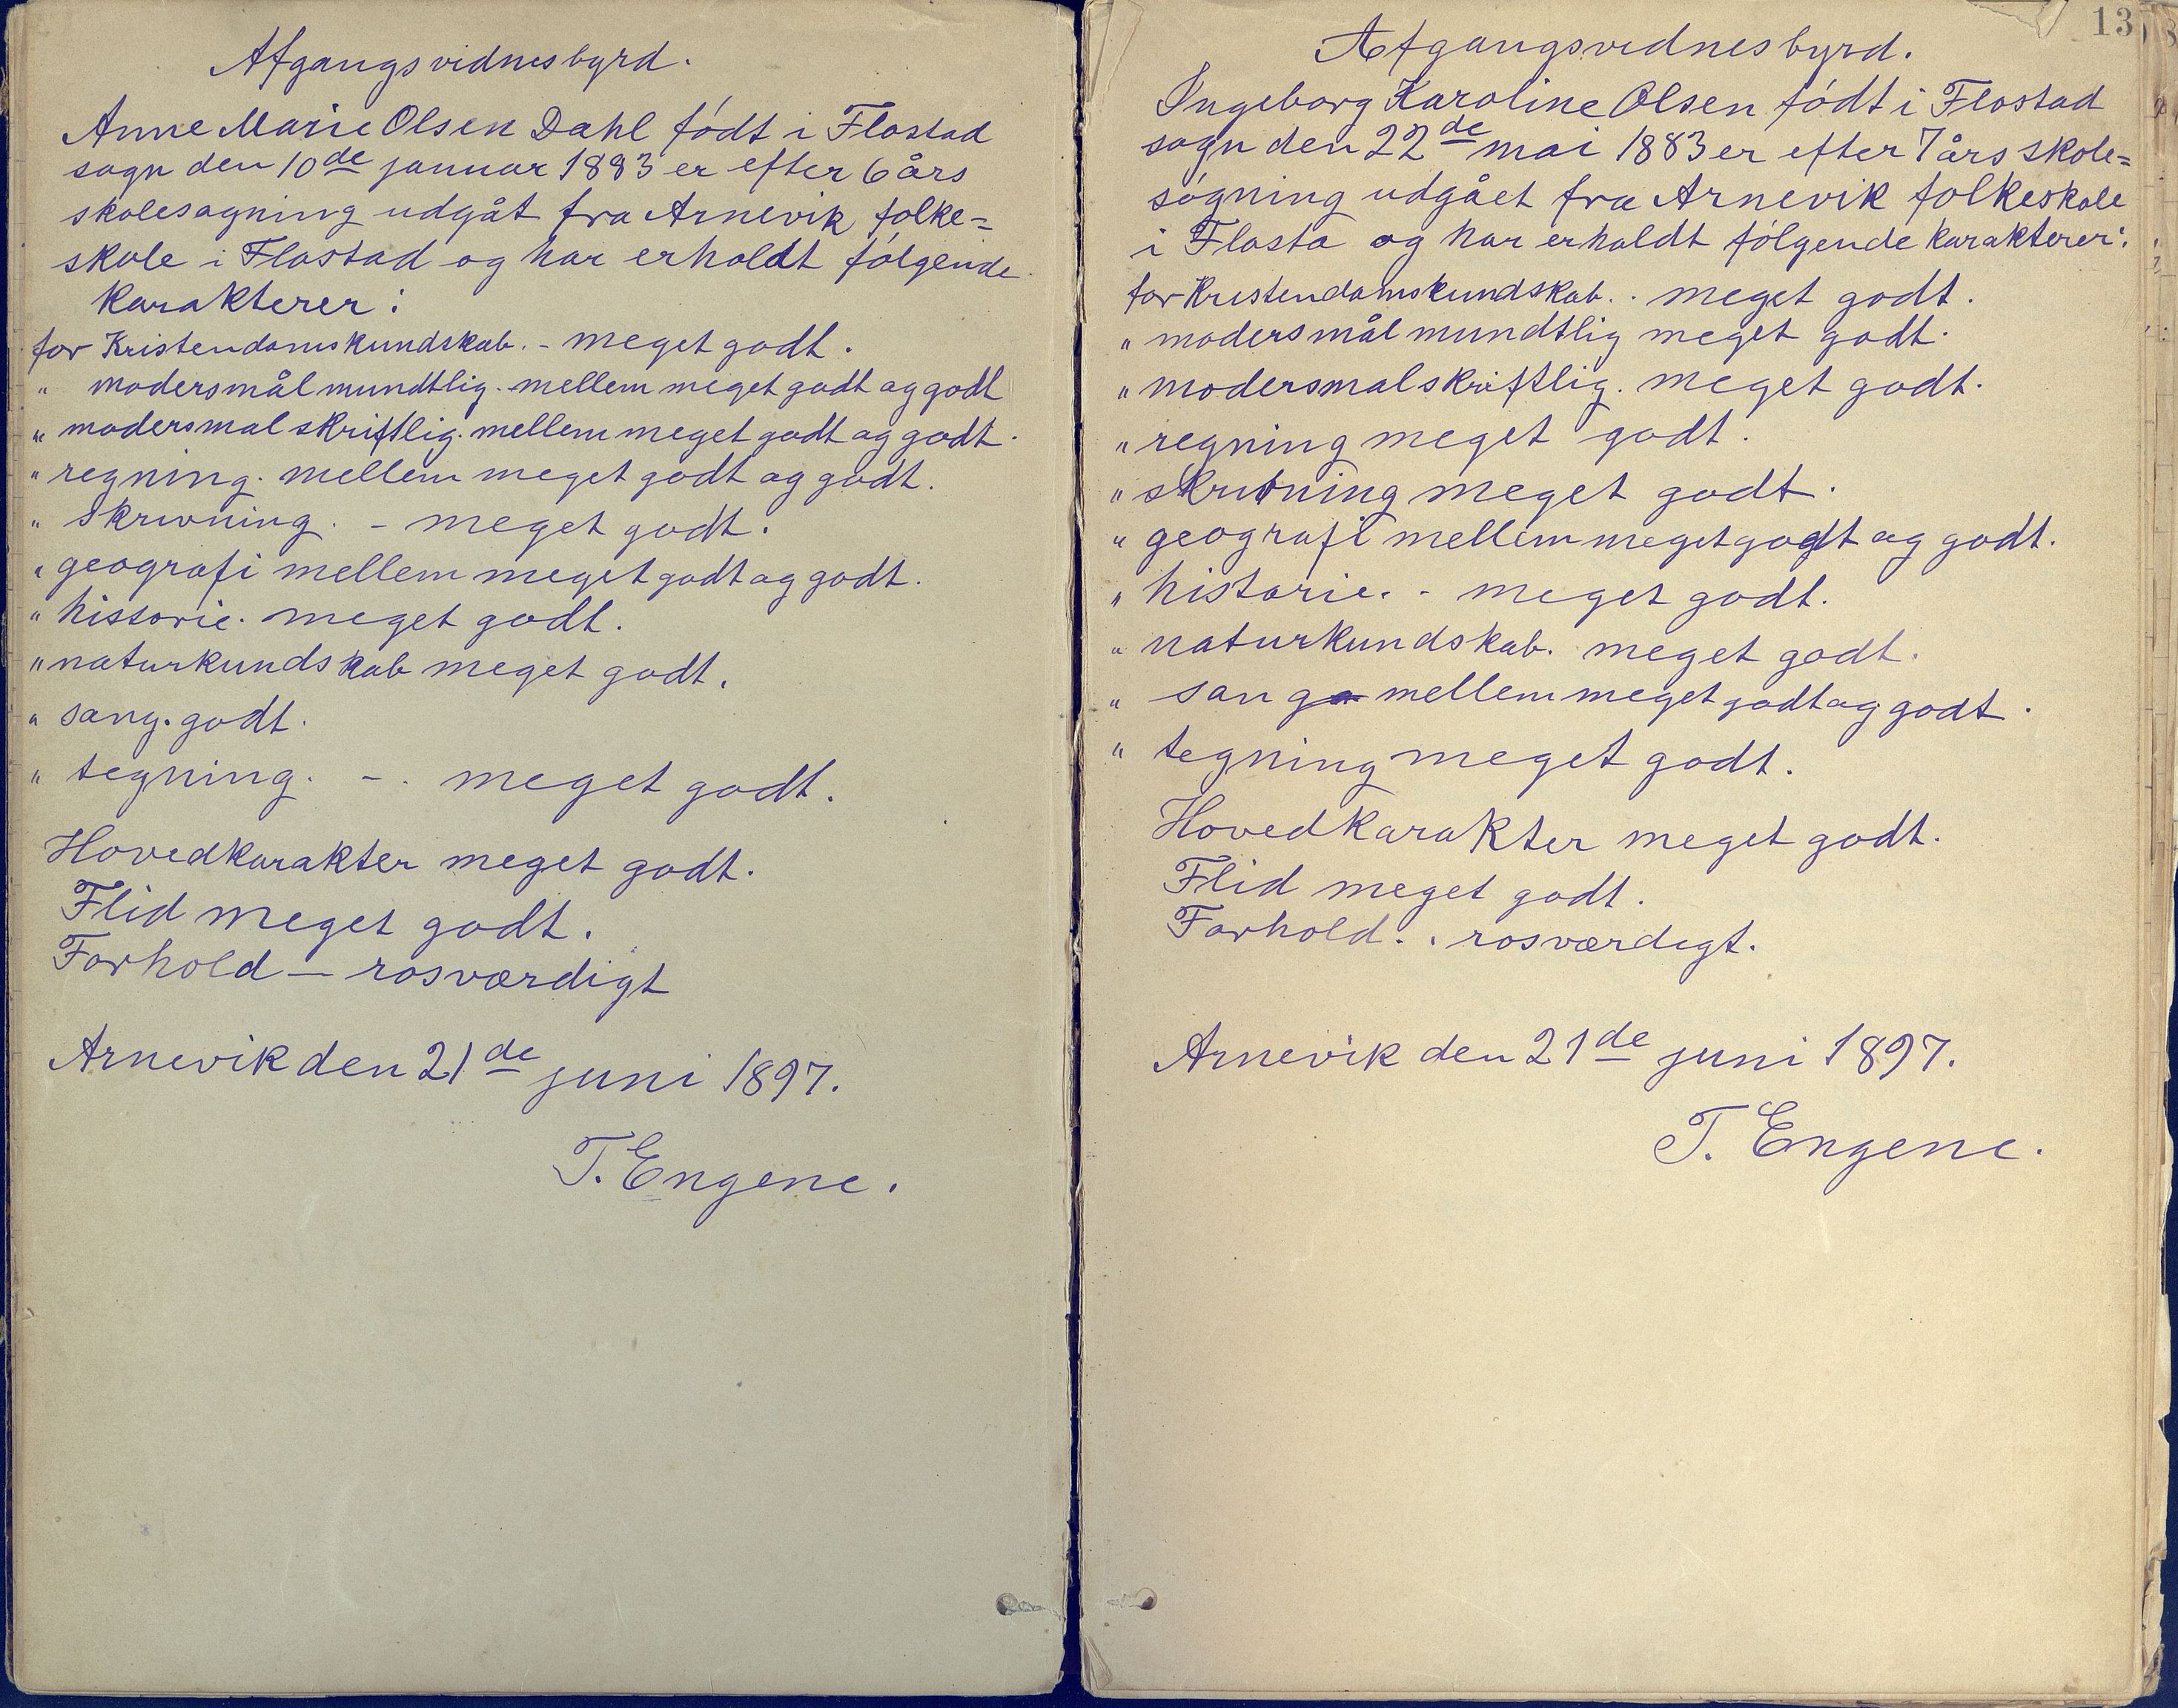 Afgangsvidnesbyrd.
Anne Marie Olsen Dahl født i Flostad
sogn den 10de januar 1883 er efter 6 års
skolesøgning udgåt fra Arnevik folke=
skole i Flostad og har erholdt følgende
karakterer:
for Kristendomskundskab. - meget godt.
" modersmål mundtlig. mellem meget godt og godt
" modersmal skriftlig. mellem meget godt og godt.
" regning. mellem meget godt og godt.
" skrivning. - meget godt.
" geografi mellem meget godt og godt.
" historie. meget godt.
" naturkundskab meget godt.
" sang. godt.
" tegning. - . meget godt.
Hovedkarakter meget godt.
Flid meget godt.
Forhold — rosværdigt
Arnevik den 21de juni 1897.
T. Engene.
13
Afgangsvidnesbyrd.
Ingeborg Karoline Olsen født i Flostad
sogn den 22de mai 1883 er efter 7 års skole=
søgning udgået fra Arnevik folkeskole
i Flosta og har erholdt følgende karakterer:
for Kristendomskundskab. . meget godt.
" modersmål mundtlig meget godt.
" modersmal skriftlig. meget godt.
" regning meget godt.
" skrivning meget godt.
" geografi mellem meget godt og godt.
" historie. - meget godt.
" naturkundskab. meget godt.
" sang mellem meget godt og godt.
" tegning meget godt.
Hovedkarakter meget godt.
Flid meget godt.
Forhold. . rosværdigt.
Arnevik den 21de juni 1897.
T. Engene.